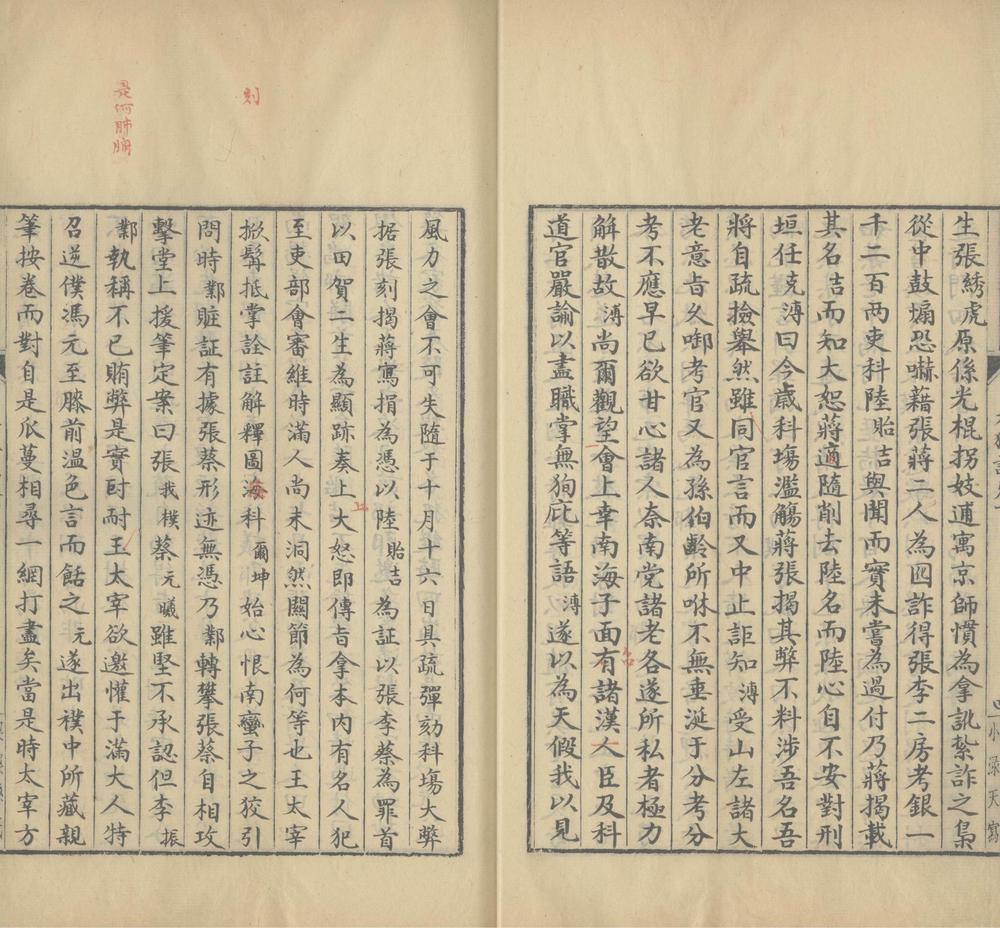 生張綉虎原係光棍拐妓逋寓京師慣為拿訛紥詐之梟
從中鼓煽恐嚇藉張蔣二人為囮詐得張李二房考銀一
千二百两吏科陸貽吉與聞而實未嘗為過付乃蔣揭載
其名吉而知大恕蔣適隨削去陸名而陸心自不安對刑
垣任克溥曰今歲科塲濫觴蔣張揭其弊不料涉吾名吾
將自疏撿舉然雖同官言而又中止詎知溥受山左諸大
老意㫖久啣考官又為孫伯齡所咻不無垂涎于分考分
考不應早已欲甘心諸人奈南党諸老各遂所私者極力
解散故溥尚爾觀望會上幸南海子面有諸漢人臣及科
名
道官嚴諭以盡職掌無狥庇等語溥遂以為天假我以見
小泶天寫
風力之會不可失隨于十月十六日具疏彈劾科塲大弊
据張刻揭蔣寫捐為憑以陸貽吉為証以張李蔡為罪首
以田賀二生為顯跡奏上大怒即傳㫖拿本内有名人犯
上
至吏部會審維時滿人尚未洞然關節為何等也王太宰
掀髯抵掌詮註解釋圖海科爾坤始心恨南蠻子之狡引
刻
問時鄴賍証有據張蔡形迹無憑乃鄴轉攀張蔡自相攻
擊堂上援筆定案曰張我樸蔡元曦雖堅不承認但李振
鄴執稱不已賄弊是實酎耐王太宰欲邀懽于滿大人特
是何肺腑
召逆僕馮元至膝前温色言而餂之元遂出襆中所藏親
筆按卷而對自是瓜蔓相尋一網打盡矣當是時太宰方